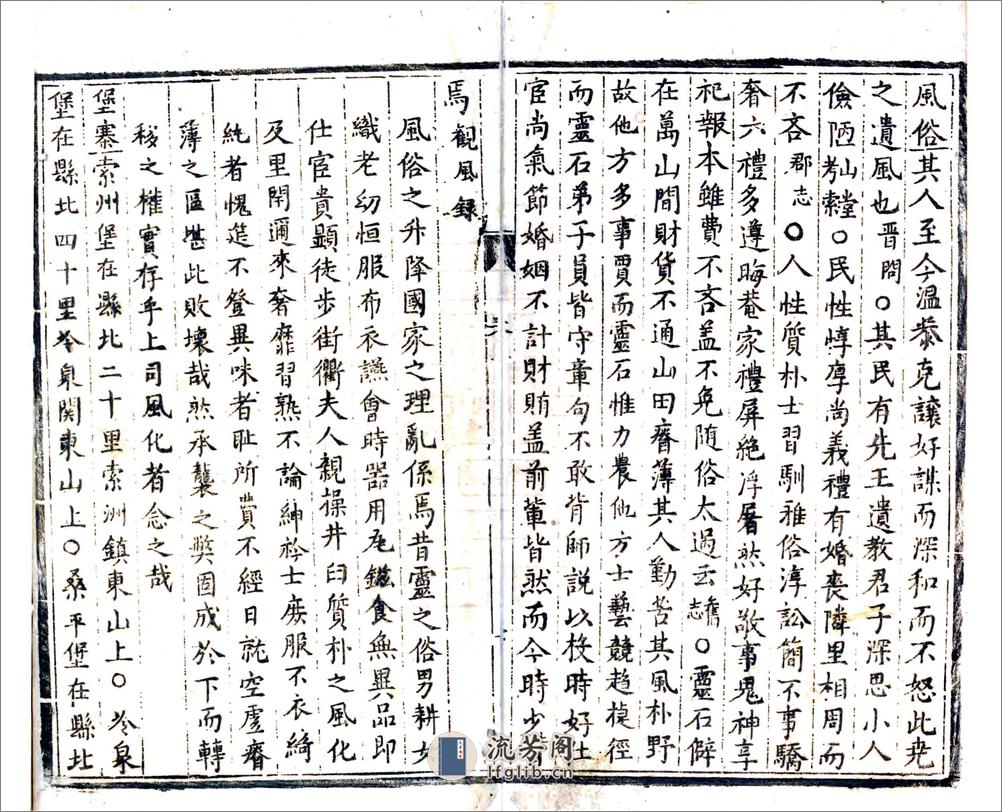 風俗其人至今溫恭克讓好謀而深和而不怒此堯
之遺風也晋問〇其民有先王遺教君子深思小人
儉陋山堂考索〇民性惇厚尚義禮有婚喪隣里相周而
不吝郡志〇人性質朴士習馴雅俗淳訟簡不事驕
奢六禮多遵晦菴家禮屏絕浮屠然好敬事鬼神享
祀報本雖費不吝盖不免随俗太過云舊志〇靈石僻
在萬山間財貨不通山田瘠薄其人勤苦其風朴野
故他方多事賈而靈石惟力農他方士藝競趋捷徑
而靈石弟子員皆守章句不敢背師說以投時好仕
宦尚氣節婚姻不計財賄盖前輩皆然而今時少
焉觀風录
風俗之升降國家之理亂係焉昔靈之俗男耕女
織老幼恒服布衣讌會時器用瓦磁食無異品即
仕宦貴顯徒步街衢夫人親操井臼質朴之風化
及里閈邇來奢靡習熟不論紳衿士庻服不衣綺
純者愧筵不登異味者耻所賞不經日就空虛瘠
薄之區堪此敗壞哉然承襲之獘固成於下而轉
移之權實存乎上司風化者念之哉
堡寨索州堡在縣北二十里索洲鎮東山上〇冷泉
堡在縣北四十里冷泉関東山上〇桑平堡在縣北
流芳阁
lfglib.cn